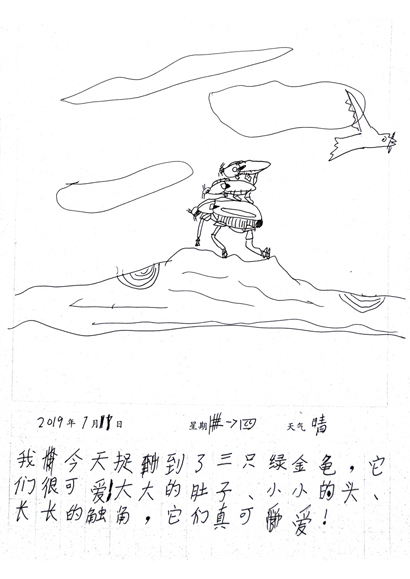 2019年7月11日 星期四 天气 晴
我今天捉到了三只绿金龟，它
们很可爱大大的肚子、小小的头、
长长的触角，它们真可爱！